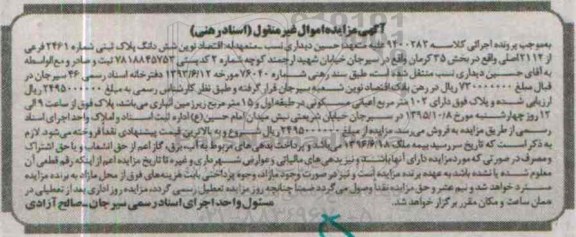 آگهی مزایده اموال غیر منقول (اسناد رهنی)
بموجب پرونده اجرائی کلاسه ۹۴۰۰۲۸۳ علیه متعهد: حسین دیداری نسب ـ متعهدله: اقتصاد نوین شش دانگ پلاک ثبتی شماره ۲۴۶۱ فرعی
از ۲۱۱۲ اصلی واقع در بخش ۳۵ کرمان واقع در سیرجان خیابان شهید ارجمند کوچه شماره ۲ کد پستی ۷۸۱۸۸۴۵۷۵۳ ثبت و صادر و مع الواسطه
به آقای حسین دیداری نسب منتقل شده است، طبق سند رهنی شماره ۷۶۰۴۰ مورخه ۱۳۹۳/۶/۱۲ دفترخانه اسناد رسمی ۴۶ سیرجان در
قبال مبلغ ۷۳۰۰۰۰۰۰۰ ریال در رهن بانک اقتصاد نوین شعبه سیرجان قرار گرفته و طبق نظر کارشناس رسمی به مبلغ ۲۴۹۵۰۰۰۰۰۰ ریال
ارزیابی شده و پلاک فوق دارای ۱۰۲ متر مربع اعیانی مسکونی در طبقه اول و ۱۵ متر مربع زیرزمین انباری می باشد، پلاک فوق از ساعت ۹ الی
۱۲ روز چهارشنبه مورخ ۱۳۹۵/۱۰/۸ در سیرجان خیابان شریعتی نبش میدان امام حسین (ع) اداره ثبت اسناد و املاک واحد اجرای اسناد
رسمی از طریق مزایده به فروش می رسد، مزایده از مبلغ ۲۴۹۵۰۰۰۰۰۰ ریال شروع و به بالاترین قیمت پیشنهادی نقدا فروخته می شود، لازم
به ذکر است که تاریخ سررسید بیمه ملک ۱۳۹۶/۶/۱۸ می باشد و پرداخت بدهی های مربوط به آب، برق، گاز اعم از حق انشعاب و یا حق اشتراک
و مصرف در صورتی که مورد مزایده دارای آنها باشد و نیز بدهی های مالیاتی و عوارض شهرداری و غیره تا تاریخ مزایده اعم از اینکه رقم قطعی آن
معلوم شده یا نشده باشد به عهده برنده مزایده است و نیز در صورت وجود مازاد، وجوه پرداختی بابت هزینه های فوق از محل مازاد به برنده مزایده
مسترد خواهد شد و نیم عشر و حق مزایده نقدا وصول می گردد ضمنا چنانچه روز مزایده تعطیل رسمی گردد، مزایده روز اداری بعد از تعطیلی در
همان ساعت و مکان مقرر برگزار خواهد شد.
مسئول واحد اجرای اسناد رسمی سیرجان ـ صالح آزادی